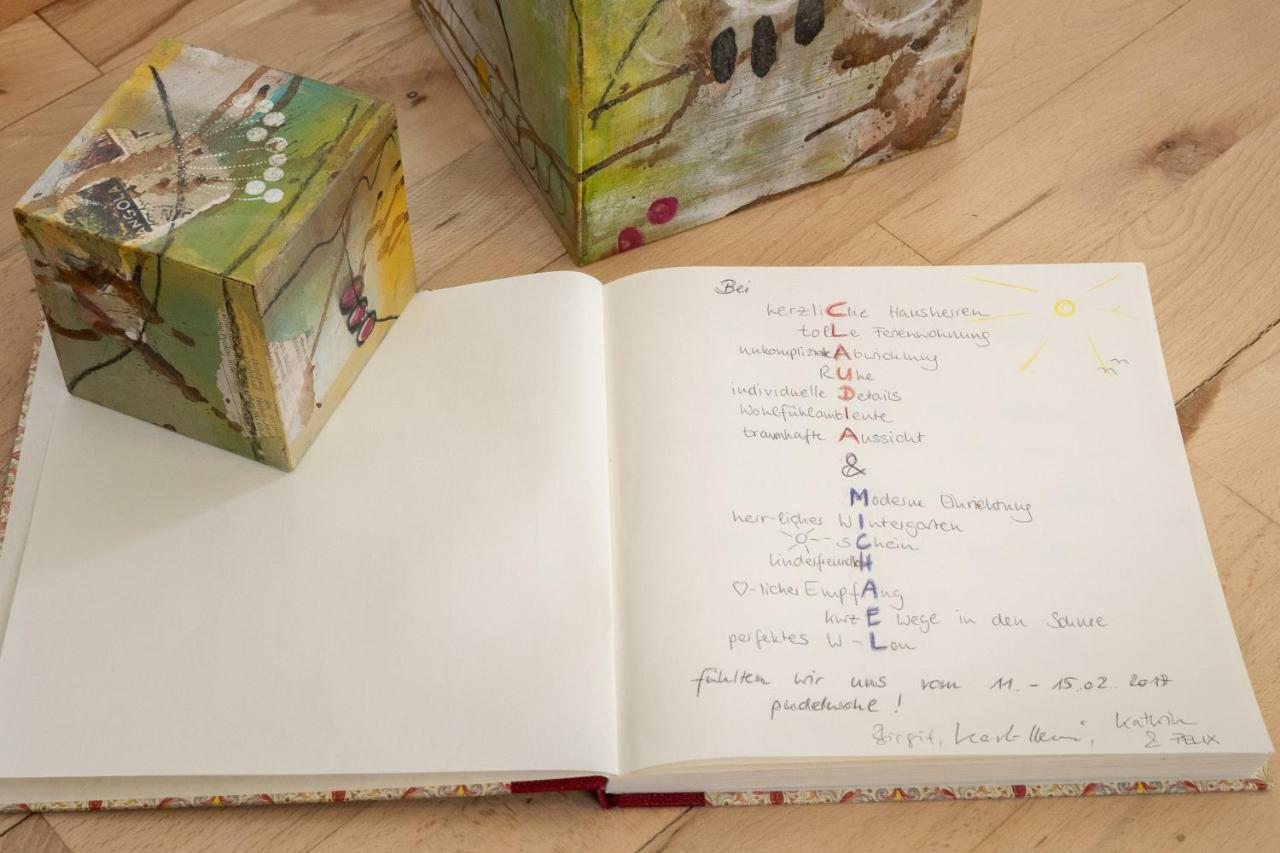 Bei
herzliChe Hausherren
toLLe Ferienwohnung
unkomplizierte Abwicklung
RUhe
individuelle Details
WohlfühlambIente
traumhafte Aussicht
&
Moderne Einrichtung
herr-licher WIntergarten
sChein
kinderfreundlicH
♡-licher EmpfAng
kurzE Wege in den Schnee
perfektes W-Lan
fühlten wir uns vom 11. - 15.02. 2017
pudelwohl !
Birgit, Karl-Heinz, Kathrin
& FELIX